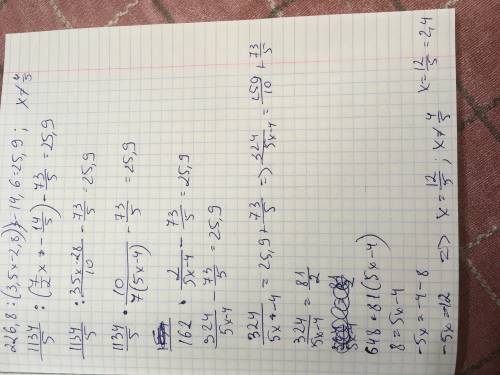 226,8 : (3,5x-2,8) - 14,6 = 25,9 ; x ≠ 4/5
1134/5 : (7/2 x - 14/5) - 73/5 = 25,9
1134/5 : 35x-28/10 - 73/5 = 25,9
1134/5 • 10/7(5x-4) - 73/5 = 25,9
162 • 2/5x-4 - 73/5 = 25,9
324/5x-4 - 73/5 = 25,9
324/5x-4 = 25,9 + 73/5 => 324/5x-4 = 259/10 + 73/5
324/5x-4 = 81/2
648 = 81(5x-4)
8 = 5x-4
-5x = -4-8
-5x = -12 => x = 12/5 ; x ≠ 4/5 x = 12/5 = 2,4